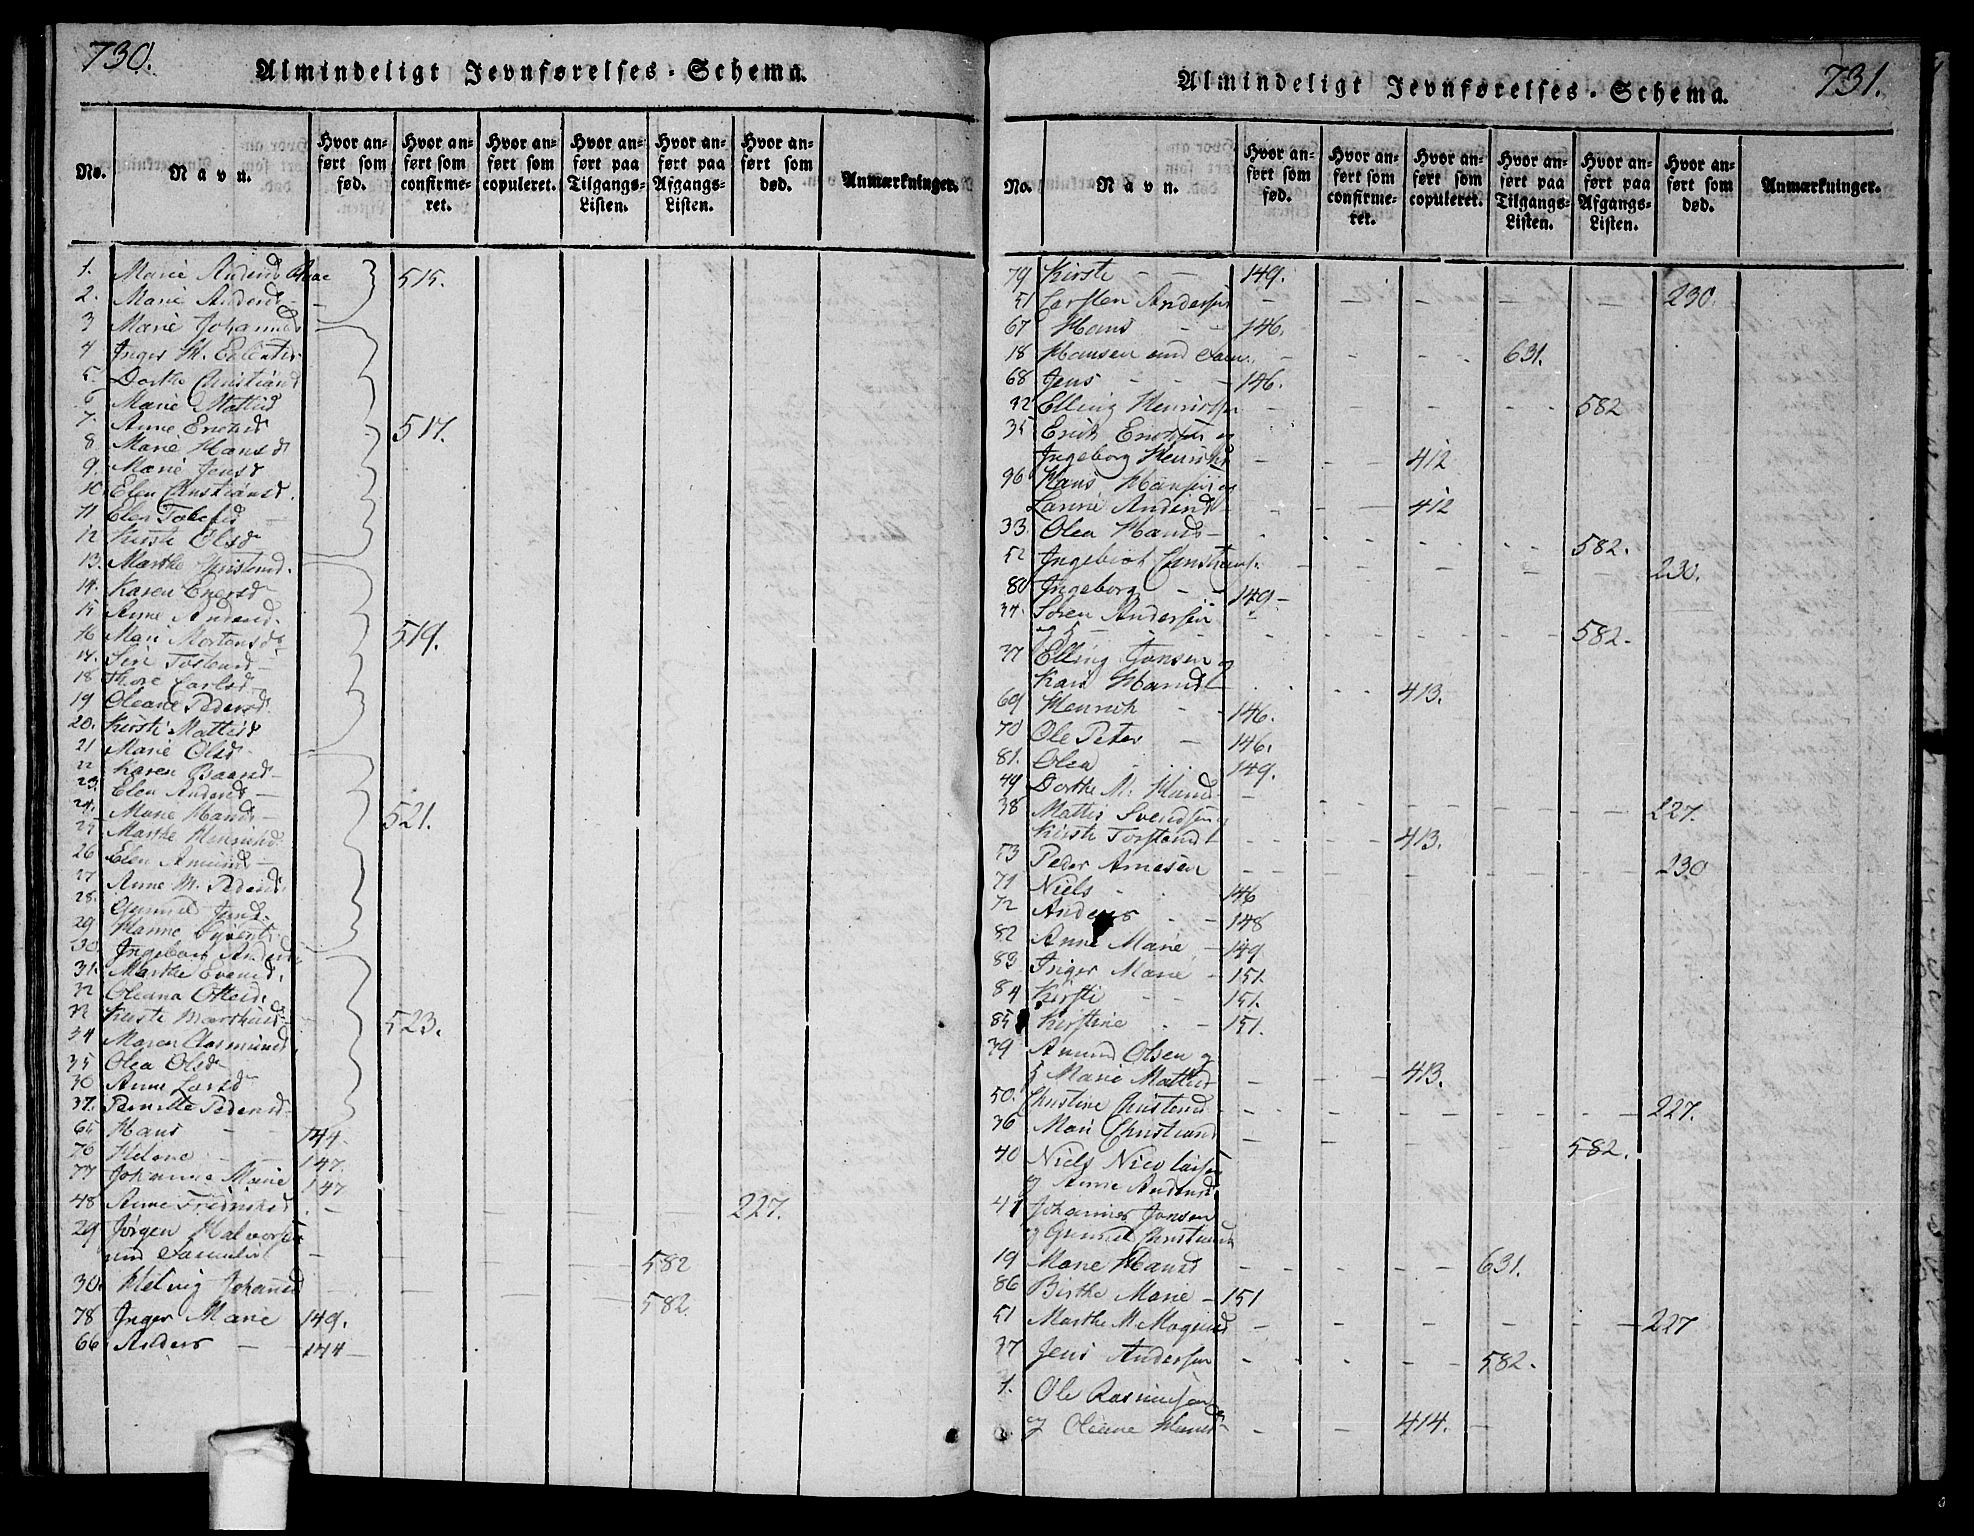 730.
Almindeligt Jevnførelses-Schema.
No. Navn. Hvor anført som fød. Hvor anført som confirmeret. Hvor anført som copuleret. Hvor anført paa Tilgangs-Listen. Hvor anført paa Afgangs-Listen. Hvor anført som død. Anmærkninger.
1. Marie Andersd 515.
2. Marie Andersd
3 Marie Johannesd
4 Inger M.
5. Dorthe Christiansd
6 Marie Mattisd
7. Anne Erichsd 517.
8. Marie Hansd
9. Marie Jensd
10. Elen Christiansd.
11 Elen
12 Kirsti Olsd
13. Marthe Christensd.
14. Karen Enersd
15 Anne Andersd.
16 Mari Mortensd 519.
17. Siri Tostensd
18 Thore Carlsd
19 Oleane Pedersd.
20. Kirsti Mattisd
21 Marie Olsd
22 Karen
23. Elen Andersd
24. Marie Hansd 521.
25 Marthe Henrichsd
26 Elen Amunds
27 Anne M. Pedersd.
28. Gunnil Jensd.
29 Hanne
30. Ingeborg Andersd
31. Marthe Evensd.
32 Oleana Ottersd.
32 Kirsti 523.
34 Maren Rasmusd.
35 Olea Olsd
30 Anne Larsd
37. Pernille Pedersd.
65 Hans 144.
76 Helene 147.
77 Johanne Marie 147
48 Anne Fredrichsd. 227.
29 Jørgen Halvorsen
und Familie 582
30. Helvig Johansd 582
78 Inger Marie 149.
66 Anders 144
731.
Almindeligt Jevnførelses-Schema.
No. Navn. Hvor anført som fød. Hvor anført som confirmeret. Hvor anført som copuleret. Hvor anført paa Tilgangs-Listen. Hvor anført paa Afgangs-Listen. Hvor anført som død. Anmærkninger.
79 Kirsti 149.
51 Carsten Andersen 230
67 Hans 146.
18 Hansen und Fam. 631.
68 Jens 146.
32 Elling Henrichsen 582
35 Erich Erichsen og
Ingeborg Henrichsd 412
96 Hans Hansen og
Andersd 412
33. Olea Hansd 582.
52 230.
80 Ingeborg 149
34. Søren Andersen
og 5 582.
37 Elling Jonsen og
Kari Hansd 413.
69 Henrich 146.
70 Ole Peter 146.
81. Olea 149.
49 Dorthe M. Hansd 227.
38 Mattis Svendsen og
Kirsti Torstensd 413.
73 Peder Arnesen 230
71 Niels 146
72 Anders 148
82 Anne Marie 149
83 Inger Marie 151.
84 Kirsti 151.
85 Kirstine 151.
39 Amund Olsen og
Marie Mattisd 413.
50. Christine Christensd 227.
36 Mari Christiansd 582.
40 Niels Nicolaisen
og Anne Andersd
41 Johannes Jonsen
og Gunnil Christiansd
19 Marie Hansd 631.
86 Birthe Marie 151
51 Marthe M. Magnusd 227
37 Jens Andersen 582.
1. Ole Rasmusen
og Oleane Hansd 414.